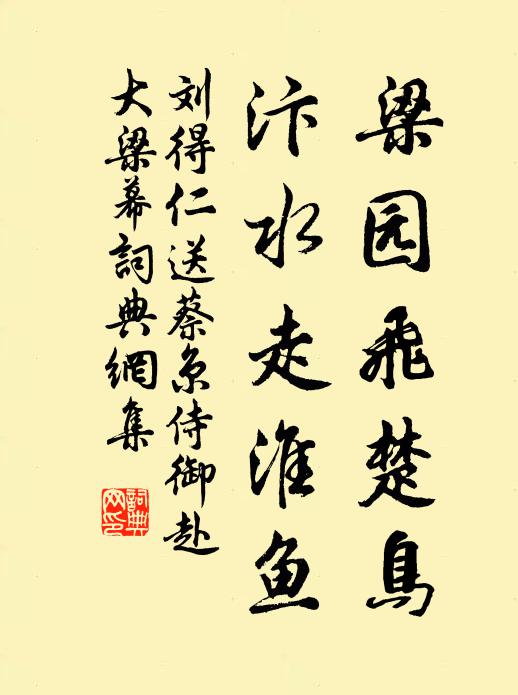 梁园飛楚鳥
汴水走淮鱼
刘得仁送蔡京侍御赴
大梁幕詞典網集
詞典
网印